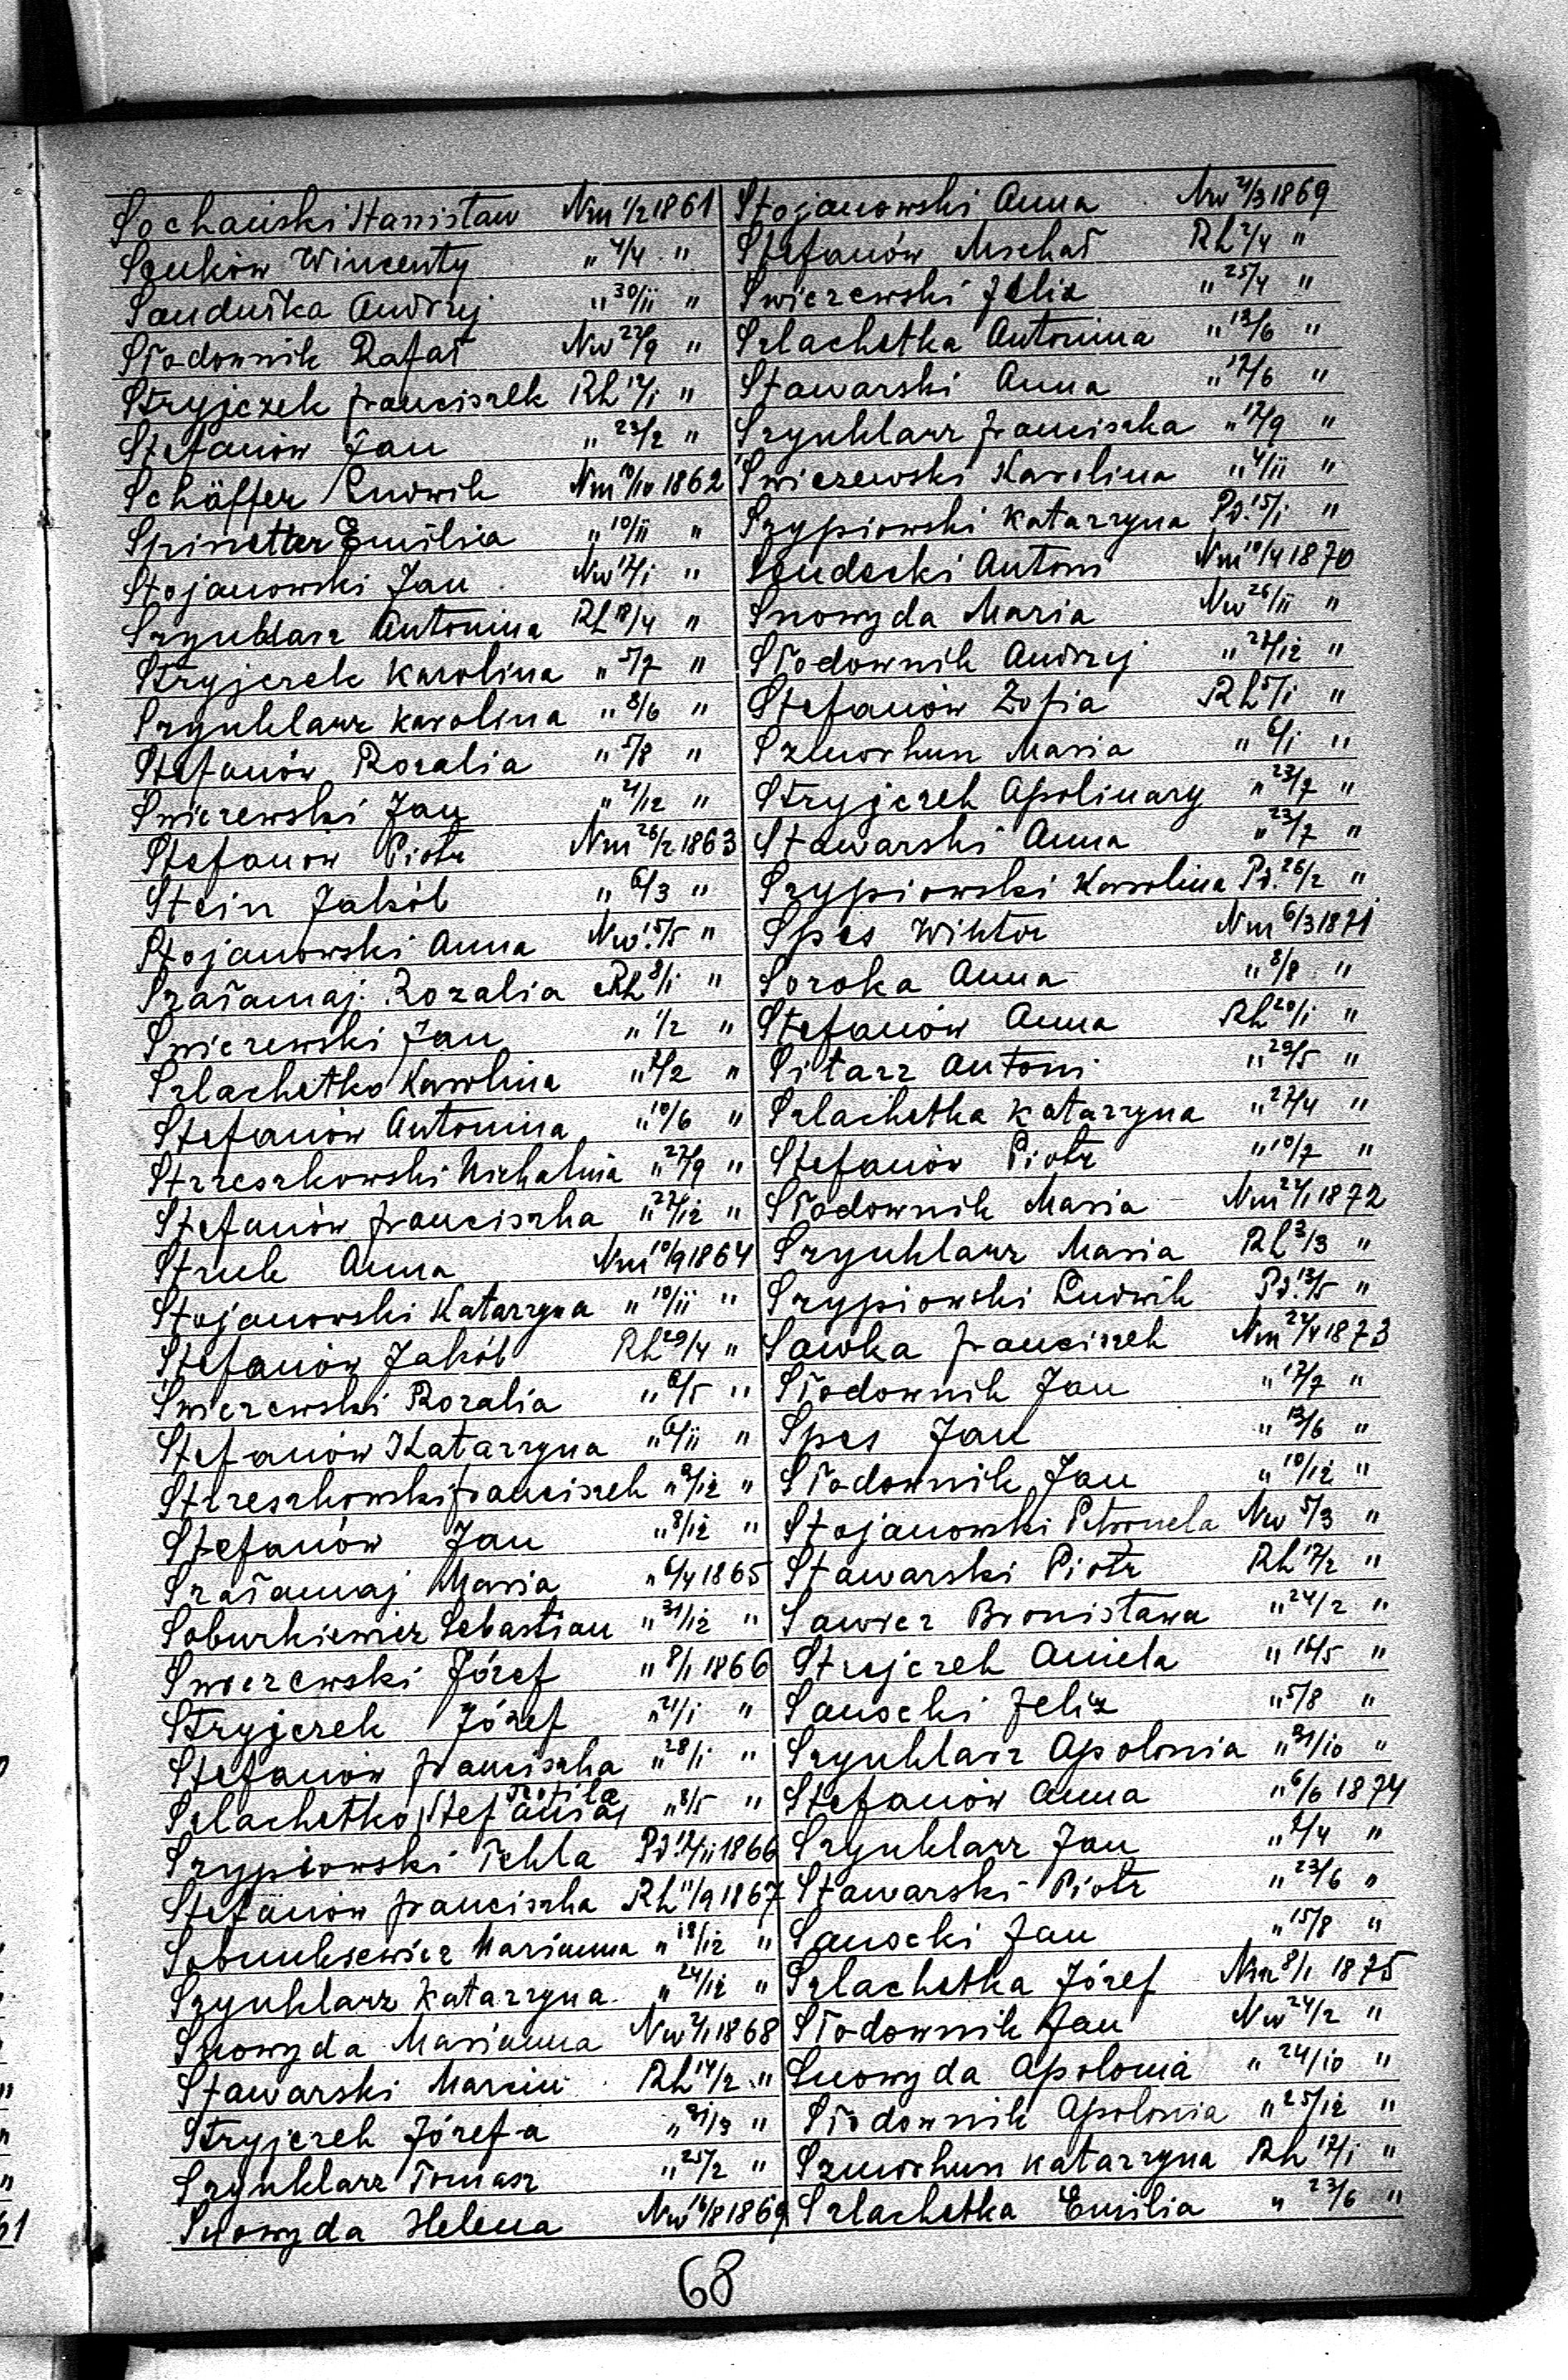 Sochański Stanisław Nm 1/2 1861
Seńków Wincenty " 4/4 "
Sanduška Andrzej " 30/11 "
Słodownik Rafał Nw 22/9 "
Stryjczek Franciszek Rh 12/1 "
Stefanów Jan " 23/2 "
Schäffer Ludwik Nm 10/10 1862
Spinetter Emilia " 10/11 "
Stojanowski Jan Nw 17/1 "
Szynklarz Antonina Rh 18/4 "
Stryjczek Karolina " 5/7 "
Szynklarz Karolina " 8/6 "
Stefanów Rozalia " 5/8 "
Świerzewski Jan " 21/12 "
Stefanów Piotr Nm 26/2 1863
Stein Jakób " 6/3 "
Stojanowski Anna Nw 15/5 "
Szałamaj Rozalia Rh 8/1 "
Świerzewski Jan " 1/2 "
Szlachetko Karolina " 2/2 "
Stefanów Antonina " 10/6 "
Strzeszkowski Michalina " 27/9 "
Stefanów Franciszka " 27/12 "
Struk Anna Nm 10/9 1864
Stojanowski Katarzyna " 10/11 "
Stefanów Jakób Rh 29/4 "
Świerzewski Rozalia " 6/5 "
Stefanów Katarzyna " 6/11 "
Strzeszkowski Franciszek " 9/12 "
Stefanów Jan " 8/12 "
Szałamaj Maria " 6/4 1865
Soburkiewicz Sebastian " 31/12 "
Świerzewski Józef " 8/1 1866
Stryjczek Józef " 21/1 "
Stefanów Franciszka " 28/1 "
Szlachetko Stefania " 8/5 "
Szypiowski Tekla Pd. 12/11 1866
Stefanów Franciszka Rh 11/9 1867
Sobunkiewicz Marianna " 18/12 "
Szynklarz Katarzyna " 24/12 "
Snowyda Marianna Nw 2/1 1868
Stawarski Marcin Rh 14/2 "
Stryjczek Józefa " 21/3 "
Szynklarz Tomasz " 25/2 "
Snowyda Helena Nw 16/8 1869
Stojanowski Anna Nw 21/3 1869
Stefanów Michał Rh 2/4 "
Świerzewski Felix " 25/4 "
Szlachetka Antonina " 13/6 "
Stawarski Anna " 17/6 "
Szynklarz Franciszka " 17/9 "
Świerzewski Karolina " 4/11 "
Szypiowski Katarzyna Pd. 15/1 "
Sendecki Antoni Nm 10/4 1870
Snowyda Maria Nw 26/11 "
Słodownik Andrzej " 27/12 "
Stefanów Zofia Rh 5/1 "
Szmorhun Maria " 6/1 "
Stryjczek Apolinary " 23/7 "
Stawarski Anna " 23/7 "
Szypiowski Karolina Pd. 26/2 "
Spes Wiktor Nm 6/3 1871
Soroka Anna " 8/8 "
Stefanów Anna Rh 20/1 "
Sitarz Antoni " 29/5 "
Szlachetka Katarzyna " 27/4 "
Stefanów Piotr " 10/7 "
Słodownik Maria Nm 22/1 1872
Szynklarz Maria Rh 3/3 "
Szypiowski Ludwik Pd. 13/5 "
Sawka Franciszek Nm 24/4 1873
Słodownik Jan " 17/7 "
Spes Jan " 13/6 "
Słodownik Jan " 10/12 "
Stojanowski Petronela Nw 5/3 "
Stawarski Piotr Rh 17/2 "
Sawicz Bronisława " 24/2 "
Strejczek Aniela " 16/5 "
Sanocki Felix " 5/8 "
Szynklarz Apolonia " 31/10 "
Stefanów Anna " 6/6 1874
Szynklarz Jan " 2/4 "
Stawarski Piotr " 23/6 "
Sanocki Jan " 15/8 "
Szlachetka Józef Nm 8/1 1875
Słodownik Jan Nw 24/2 "
Snowyda Apolonia " 24/10 "
Słodownik Apolonia " 25/12 "
Szmorhun Katarzyna Rh 17/1 "
Szlachetka Emilia " 23/6 "
68